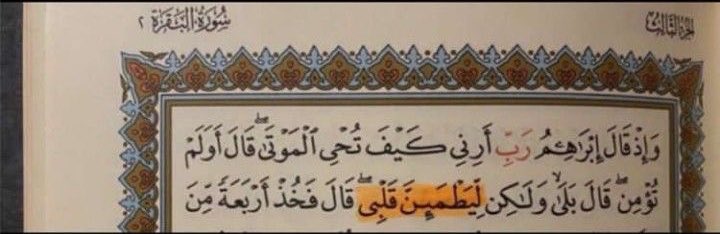 الجزء الثالث
سورة البقرة ٢
وَإِذْ قَالَ إِبْرَٰهِـۧمُ رَبِّ أَرِنِي كَيْفَ تُحْيِ الْمَوْتَىٰ ۖ قَالَ أَوَلَمْ
تُؤْمِن ۖ قَالَ بَلَىٰ وَلَٰكِن لِّيَطْمَئِنَّ قَلْبِي ۖ قَالَ فَخُذْ أَرْبَعَةً مِّنَ